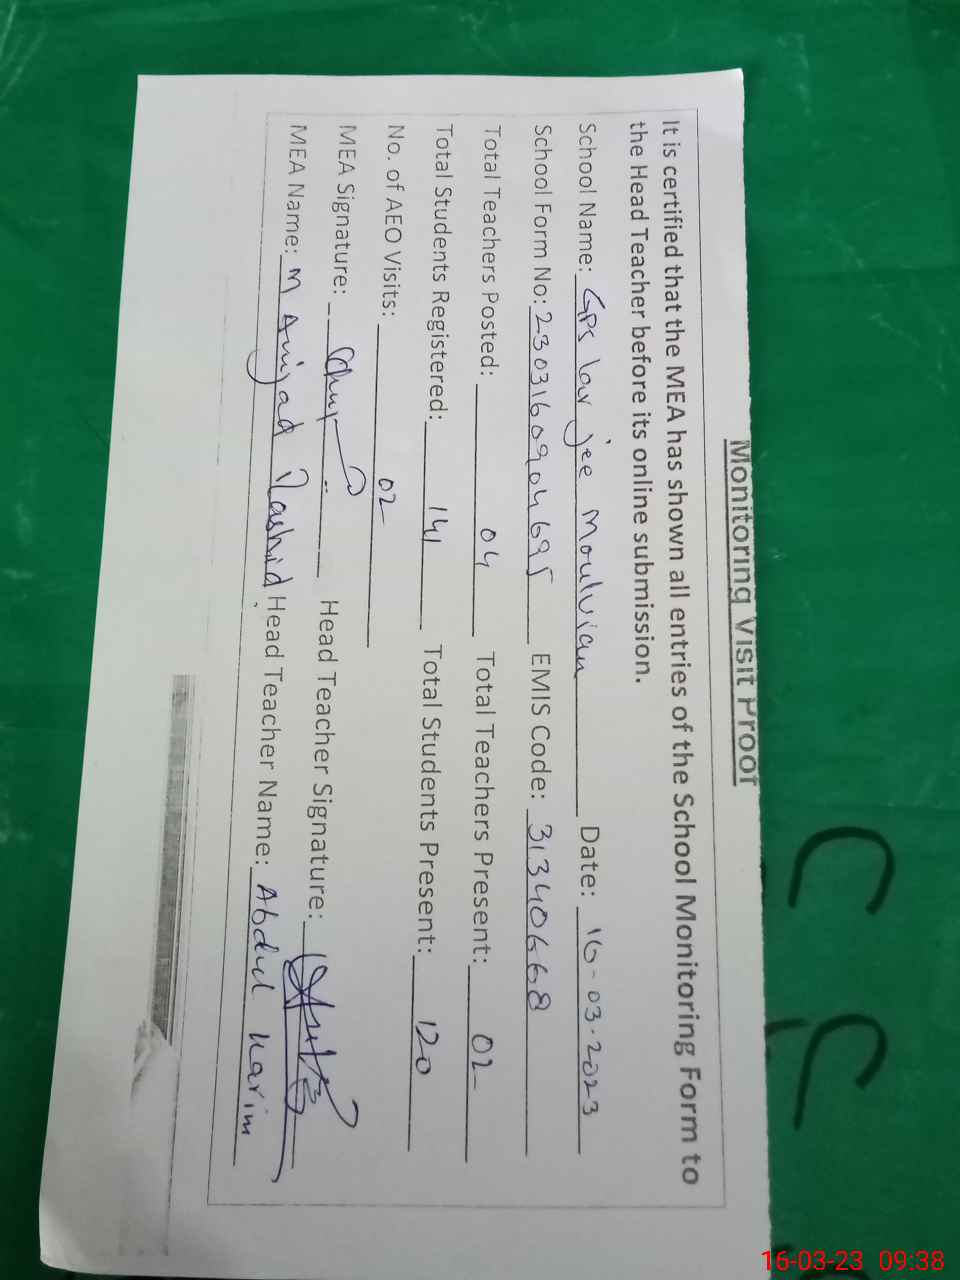 Monitoring Visit Proof
It is certified that the MEA has shown all entries of the School Monitoring Form to
the Head Teacher before its online submission.
School Name: GPS law jee Moulvian Date: 16-03-2023
School Form No: 2303160904695 EMIS Code: 31340668
Total Teachers Posted: 04 Total Teachers Present: 02
Total Students Registered: 141 Total Students Present: 120
No. of AEO Visits: 02
MEA Signature: Head Teacher Signature:
MEA Name: M Amjad Rashid Head Teacher Name: Abdul Karim
16-03-23 09:38